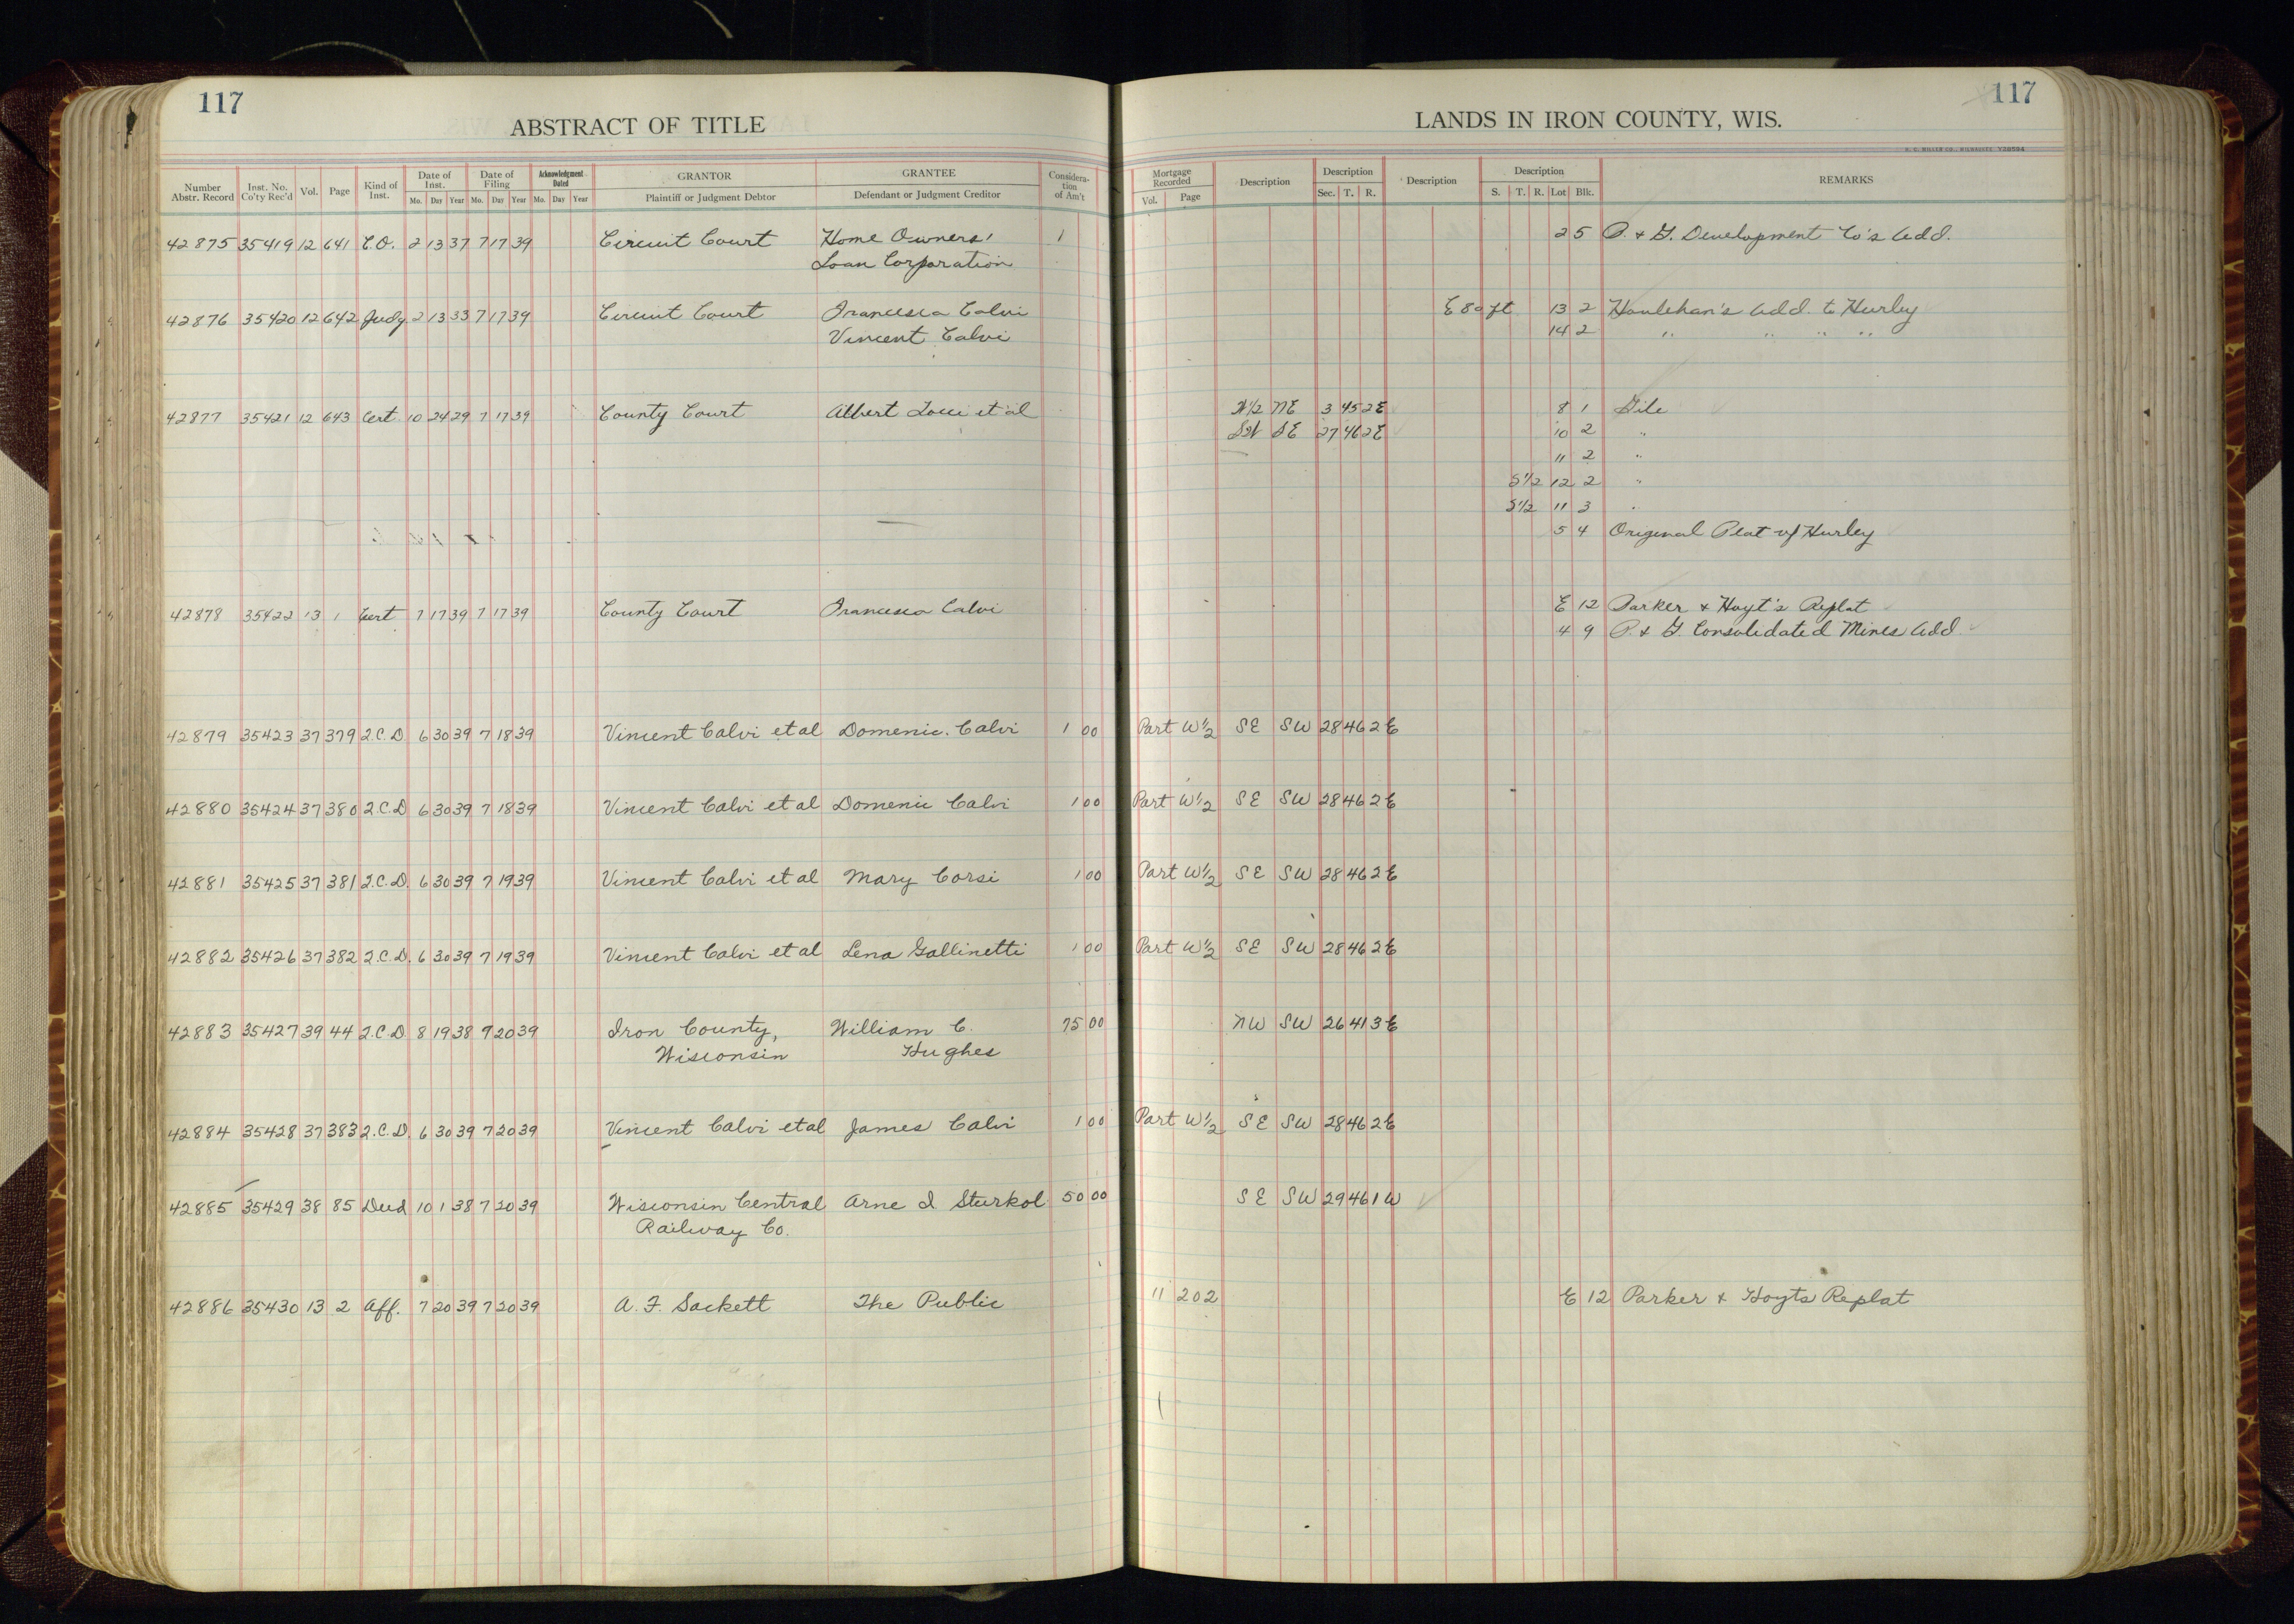 117
117
ABSTRACT OF TITLE
LANDS IN IRON COUNTY, WIS.
H. C. MILLER CO., MILWAUKEE
Number Abstr. Record | Inst. No. Co'ty Rec'd | Vol. | Page | Kind of Inst. | Date of Inst. Mo. Day Year | Date of Filing Mo. Day Year | Acknowledgment Dated Mo. Day Year | GRANTOR Plaintiff or Judgment Debtor | GRANTEE Defendant or Judgment Creditor | Consideration of Am't | Mortgage Recorded Vol. Page | Description | Description Sec. T. R. | Description | Description S. T. R. Lot Blk. | REMARKS
42875 35419 12 641 C.O. 2 13 37 7 17 39 Circuit Court Home Owners' 1 2 5 P. & G. Development Co's Add.
Loan Corporation
42876 35420 12 642 Judg 2 13 33 7 17 39 Circuit Court Francesca Calvi E 80 ft 13 2 Houlehan's Add. to Hurley
Vincent Calvi 14 2 " " " "
42877 35421 12 643 Cert. 10 24 29 7 17 39 County Court Albert et al 1/2 NE 3 45 2E 8 1 Gile
SE 27 46 2E 10 2 "
11 2 "
S1/2 12 2 "
S1/2 11 3 "
5 4 Original Plat of Hurley
42878 35422 13 1 Cert 7 17 39 7 17 39 County Court Francesca Calvi E 12 Parker & Hoyt's Replat
4 9 P. & G. Consolidated Mines Add.
42879 35423 37 379 Q.C.D 6 30 39 7 18 39 Vincent Calvi et al Domenic Calvi 1 00 Part W 1/2 SE SW 28 46 2 E
42880 35424 37 380 Q.C.D 6 30 39 7 18 39 Vincent Calvi et al Domenic Calvi 1 00 Part W 1/2 SE SW 28 46 2 E
42881 35425 37 381 Q.C.D. 6 30 39 7 19 39 Vincent Calvi et al Mary Corsi 1 00 Part W 1/2 SE SW 28 46 2 E
42882 35426 37 382 Q.C.D. 6 30 39 7 19 39 Vincent Calvi et al Lena Gallinetti 1 00 Part W 1/2 SE SW 28 46 2 E
42883 35427 39 44 Q.C.D 8 19 38 7 20 39 Iron County, William C. 75 00 NW SW 26 41 3 E
Wisconsin Hughes
42884 35428 37 383 Q.C.D. 6 30 39 7 20 39 Vincent Calvi et al James Calvi 1 00 Part W 1/2 SE SW 28 46 2 E
42885 35429 38 85 Deed 10 1 38 7 20 39 Wisconsin Central Arne I. Sturkol 50 00 SE SW 29 46 1 W
Railway Co.
42886 35430 13 2 Aff. 7 20 39 7 20 39 A. F. Sackett The Public 11 202 E 12 Parker & Hoyts Replat